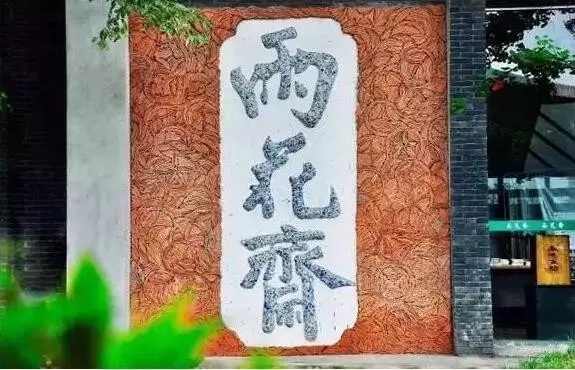 雨花齋